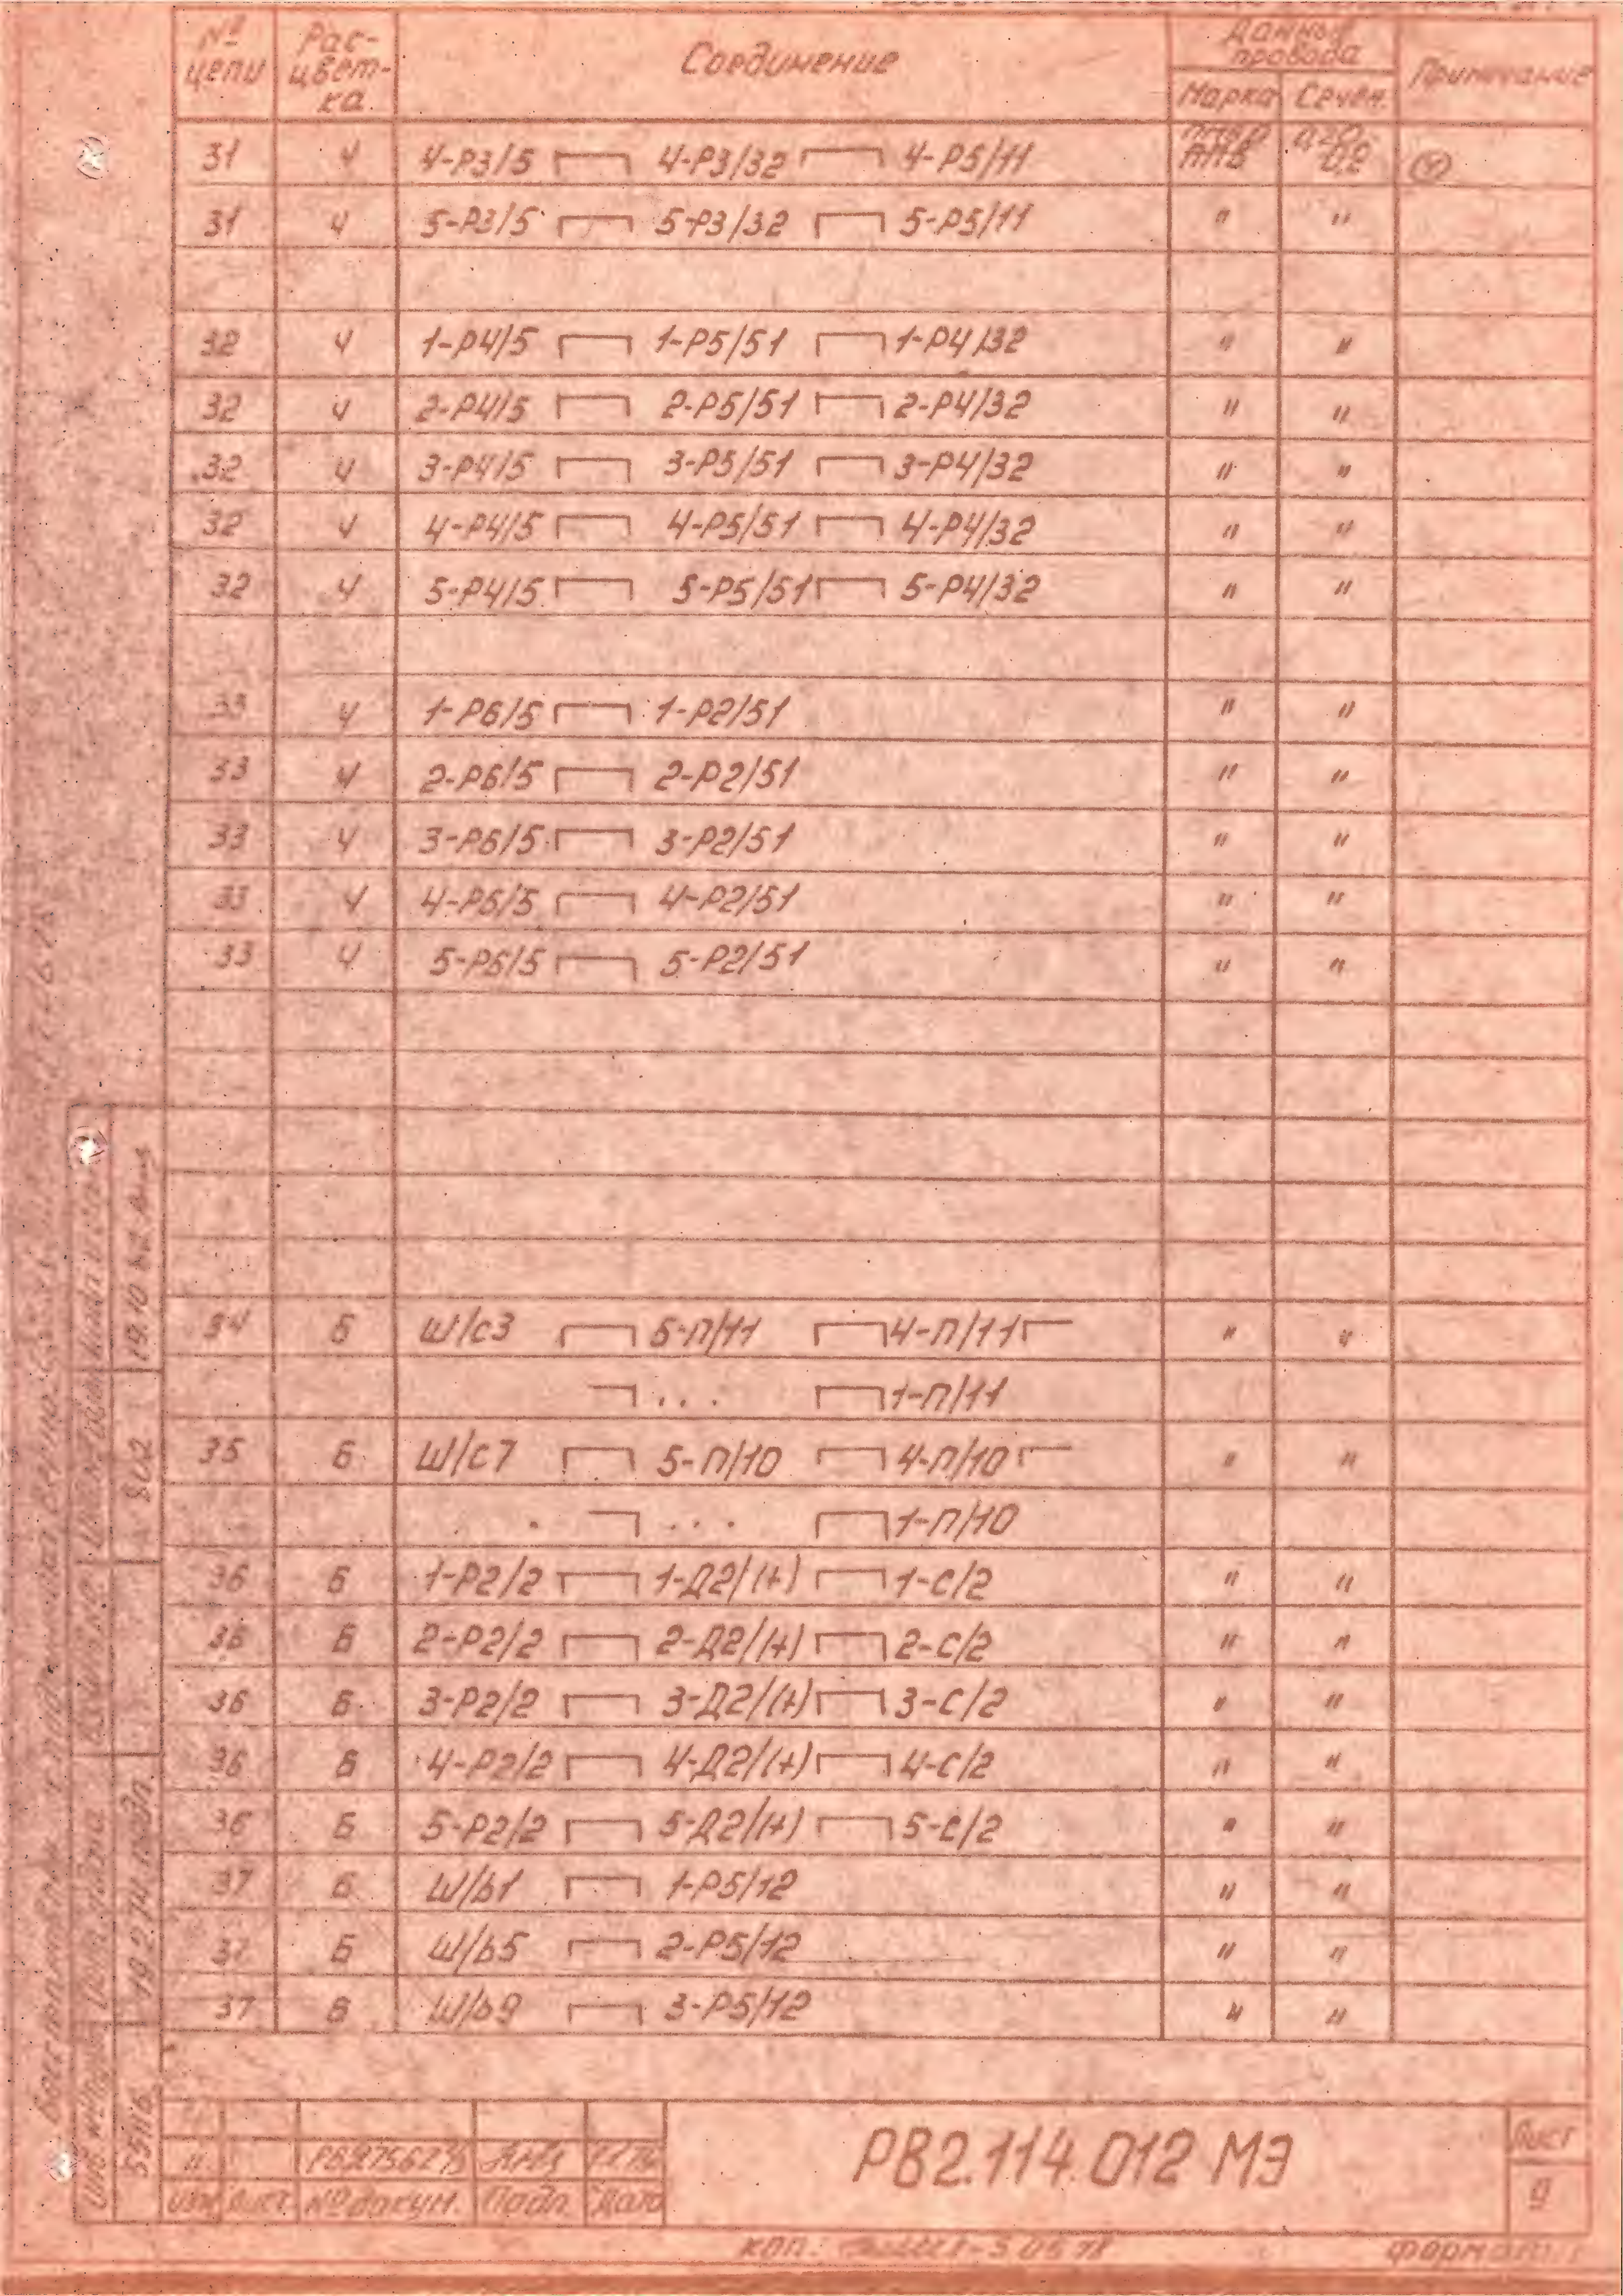 № цепи Рас-цвет-ка Соединение Данные провода Примечание
Марка Сечен.
31 Ч 4-Р3/5 4-Р3/32 4-Р5/11 ПМВ 0,2
31 Ч 5-Р3/5 5-Р3/32 5-Р5/11 " "
32 Ч 1-Р4/5 1-Р5/51 1-Р4/32 " "
32 Ч 2-Р4/5 2-Р5/51 2-Р4/32 " "
32 Ч 3-Р4/5 3-Р5/51 3-Р4/32 " "
32 Ч 4-Р4/5 4-Р5/51 4-Р4/32 " "
32 Ч 5-Р4/5 5-Р5/51 5-Р4/32 " "
33 Ч 1-Р6/5 1-Р2/51 " "
33 Ч 2-Р6/5 2-Р2/51 " "
33 Ч 3-Р6/5 3-Р2/51 " "
33 Ч 4-Р6/5 4-Р2/51 " "
33 Ч 5-Р6/5 5-Р2/51 " "
34 Б Ш/с3 5-П/11 4-П/11 " "
... 1-П/11
35 Б Ш/с7 5-П/10 4-П/10 " "
... 1-П/10
36 Б 1-Р2/2 1-Д2/(+) 1-С/2 " "
36 Б 2-Р2/2 2-Д2/(+) 2-С/2 " "
36 Б 3-Р2/2 3-Д2/(+) 3-С/2 " "
36 Б 4-Р2/2 4-Д2/(+) 4-С/2 " "
36 Б 5-Р2/2 5-Д2/(+) 5-С/2 " "
37 Б Ш/b1 1-Р5/12 " "
37 Б Ш/b5 2-Р5/12 " "
37 Б Ш/b9 3-Р5/12 " "
РВ2.114.012 МЭ
Лист
9
Изм Лист №докум. Подп. Дата
802
Формат